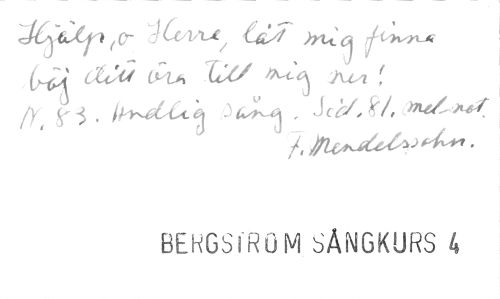 Hjälp, o Herre, låt mig finna
böj ditt öra till mig ner!
N. 83. Andlig sång. Sid. 81. mel-not.
F. Mendelssohn.
BERGSTRÖM SÅNGKURS 4